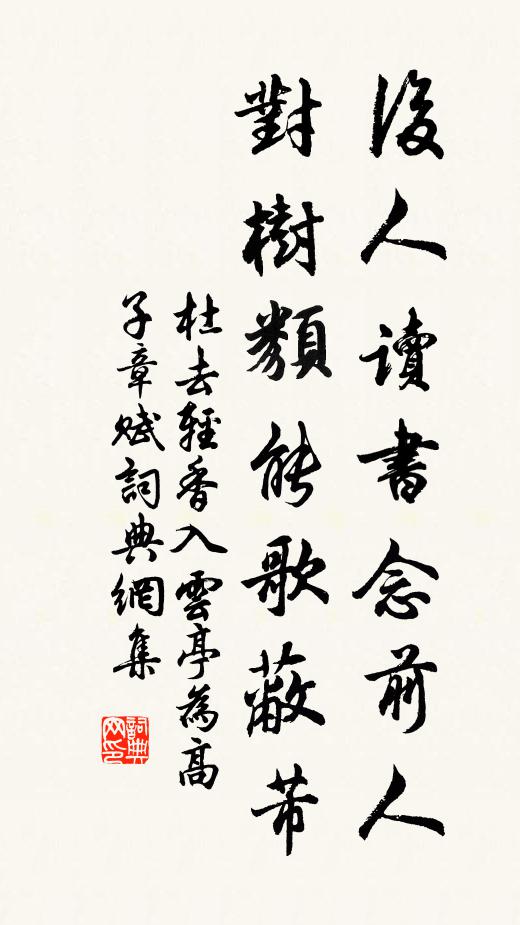 後人讀書念前人
對樹類能歌蔽芾
杜去輕香入雲亭為高
子章賦詞典網集
詞典
网印